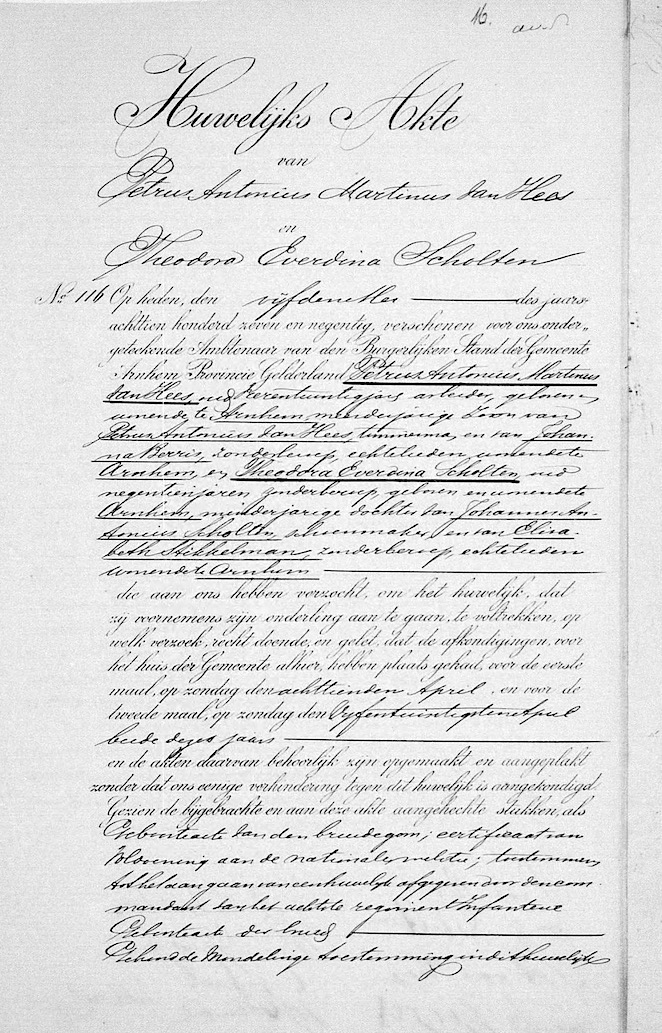 16.
Huwelijks Akte
van
Petrus Antonius Martinus van Hees
en
Theodora Everdina Scholten
No. 116 Op heden, den vijfden Mei des jaars
achttien honderd zeven en negentig, verschenen voor ons onder-
geteekende Ambtenaar van den Burgerlijken Stand der Gemeente
Arnhem Provincie Gelderland Petrus Antonius Martinus
van Hees, oud jaren, arbeider, geboren en
wonende te Arnhem, meerderjarige Zoon van
Petrus Antonius van Hees, timmerman, en van Johan-
na Berris, zonder beroep, echtelieden wonende te
Arnhem, en Theodora Everdina Scholten, oud
negentien jaren, zonder beroep, geboren en wonende te
Arnhem, minderjarige dochter van Johannes An-
tonius Scholten, schoenmaker, en van Elisa-
beth Stikkelman, zonder beroep, echtelieden
wonende te Arnhem
die aan ons hebben verzocht, om het huwelijk, dat
zij voornemens zijn onderling aan te gaan, te voltrekken, op
welk verzoek, recht doende, en gelet, dat de afkondigingen, voor
het huis der Gemeente alhier, hebben plaats gehad, voor de eerste
maal, op zondag den achttienden April, en voor de
tweede maal, op zondag den Vijfentwintigsten April
beide dezes jaars
en de akten daarvan behoorlijk zijn opgemaakt en aangeplakt
zonder dat ons eenige verhindering tegen dit huwelijk is aangekondigd.
Gezien de bijgebrachte en aan deze akte aangehechte stukken, als
Geboorteacte van den bruidegom; certificaat van
voldoening aan de nationale militie; toestemming
tot het aangaan van een huwelijk afgegeven door den com-
mandant van het achtste regiment Infanterie
Geboorteacte der bruid
Gehoord de Mondelinge toestemming in dit huwelijk